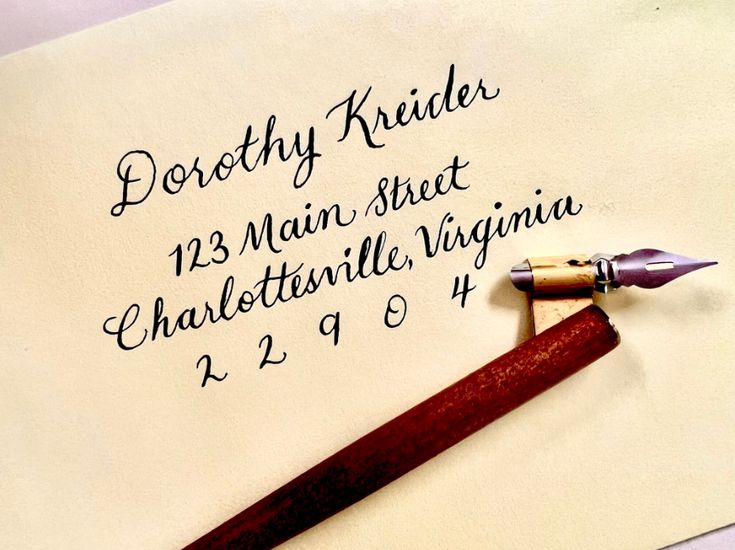 Dorothy Kreider
123 Main Street
Charlottesville, Virginia
2 2 9 0 4